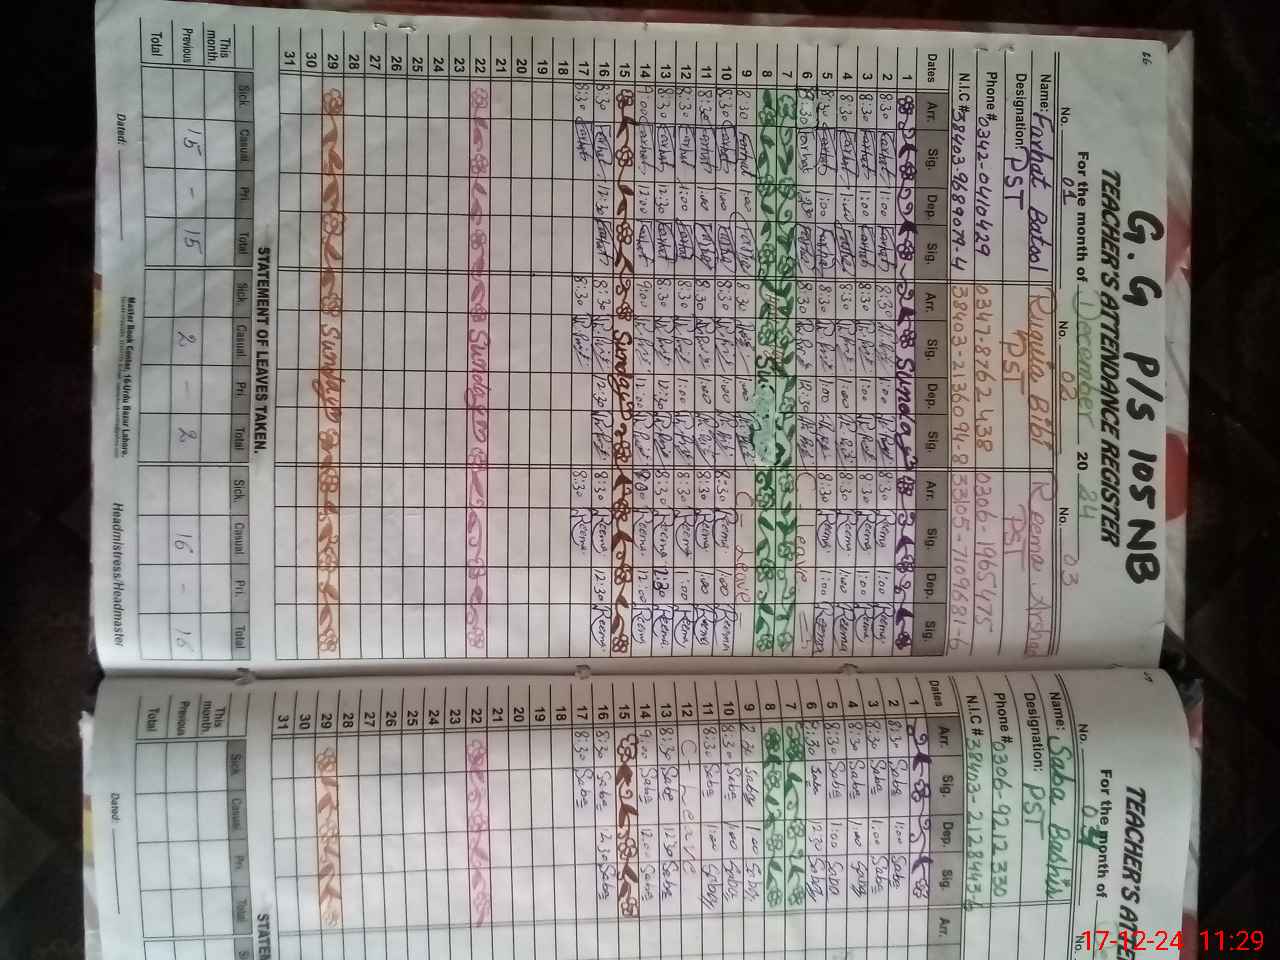 66
G. G P/S 105 NB
TEACHER'S ATTENDANCE REGISTER
For the month of December 20 24
No. 01 No. 02 No. 03
Name: Farhat Batool Ruquia Bibi Reema Arshad
Designation: PST PST PST
Phone # 0342-0410429 0347-8762438 0306-1965475
N.I.C # 38403-9689079-4 38403-2136094-8 33105-7109681-6
Dates Arr. Sig. Dep. Sig. Arr. Sig. Dep. Sig. Arr. Sig. Dep. Sig.
1 Sunday
2 8:30 Farhat 1:00 Farhat 8:30 1:00 8:30 Reema 1:00 Reema
3 8:30 Farhat 1:00 Farhat 8:30 1:00 8:30 Reema 1:00 Reema
4 8:30 Farhat 1:00 Farhat 8:30 1:00 8:30 Reema 1:00 Reema
5 8:30 Farhat 1:00 Farhat 8:30 1:00 8:30 Reema 1:00 Reema
6 8:30 Farhat 12:30 Farhat 8:30 12:30 C - leave
7
8
9 8:30 Farhat 1:00 Farhat 8:30 1:00 C - Leave
10 8:30 Farhat 1:00 Farhat 8:30 1:00 8:30 Reema 1:00 Reema
11 8:30 Farhat 1:00 Farhat 8:30 1:00 8:30 Reema 1:00 Reema
12 8:30 Farhat 1:00 Farhat 8:30 1:00 8:30 Reema 1:00 Reema
13 8:30 Farhat 12:30 Farhat 8:30 12:30 8:30 Reema 12:30 Reema
14 9:00 Farhat 12:00 Farhat 9:00 12:00 Reema 12:00 Reema
15 Sunday
16 8:30 Farhat 12:30 Farhat 8:30 12:30 8:30 Reema 12:30 Reema
17 8:30 Farhat 8:30 8:30 Reema
18
19
20
21
22 Sunday
23
24
25
26
27
28
29 Sunday
30
31
STATEMENT OF LEAVES TAKEN.
Sick Casual Pri Total Sick Casual Pri Total Sick Casual Pri. Total
This month.
Previous 15 - 15 2 - 2 16 - 16
Total
Dated:
Master Book Center, 16-Urdu Bazar Lahore.
Headmistress/Headmaster
TEACHER'S ATTE
For the month of
No. 04 No.
Name: Saba Bashir
Designation: PST
Phone # 0306-9212330
N.I.C # 38403-2128443-6
Dates Arr. Sig. Dep. Sig. Arr.
1
2 8:30 Saba 1:00 Saba
3 8:30 Saba 1:00 Saba
4 8:30 Saba 1:00 Saba
5 8:30 Saba 1:00 Saba
6 8:30 Saba 12:30 Saba
7
8
9 8:30 Saba 1:00 Saba
10 8:30 Saba 1:00 Saba
11 8:30 Saba 1:00 Saba
12 C - Leave
13 8:30 Saba 12:30 Saba
14 9:00 Saba 12:00 Saba
15
16 8:30 Saba 12:30 Saba
17 8:30 Saba
18
19
20
21
22
23
24
25
26
27
28
29
30
31
STATEM
Sick Casual Pri. Total
This month.
Previous
Total
Dated:
17-12-24 11:29